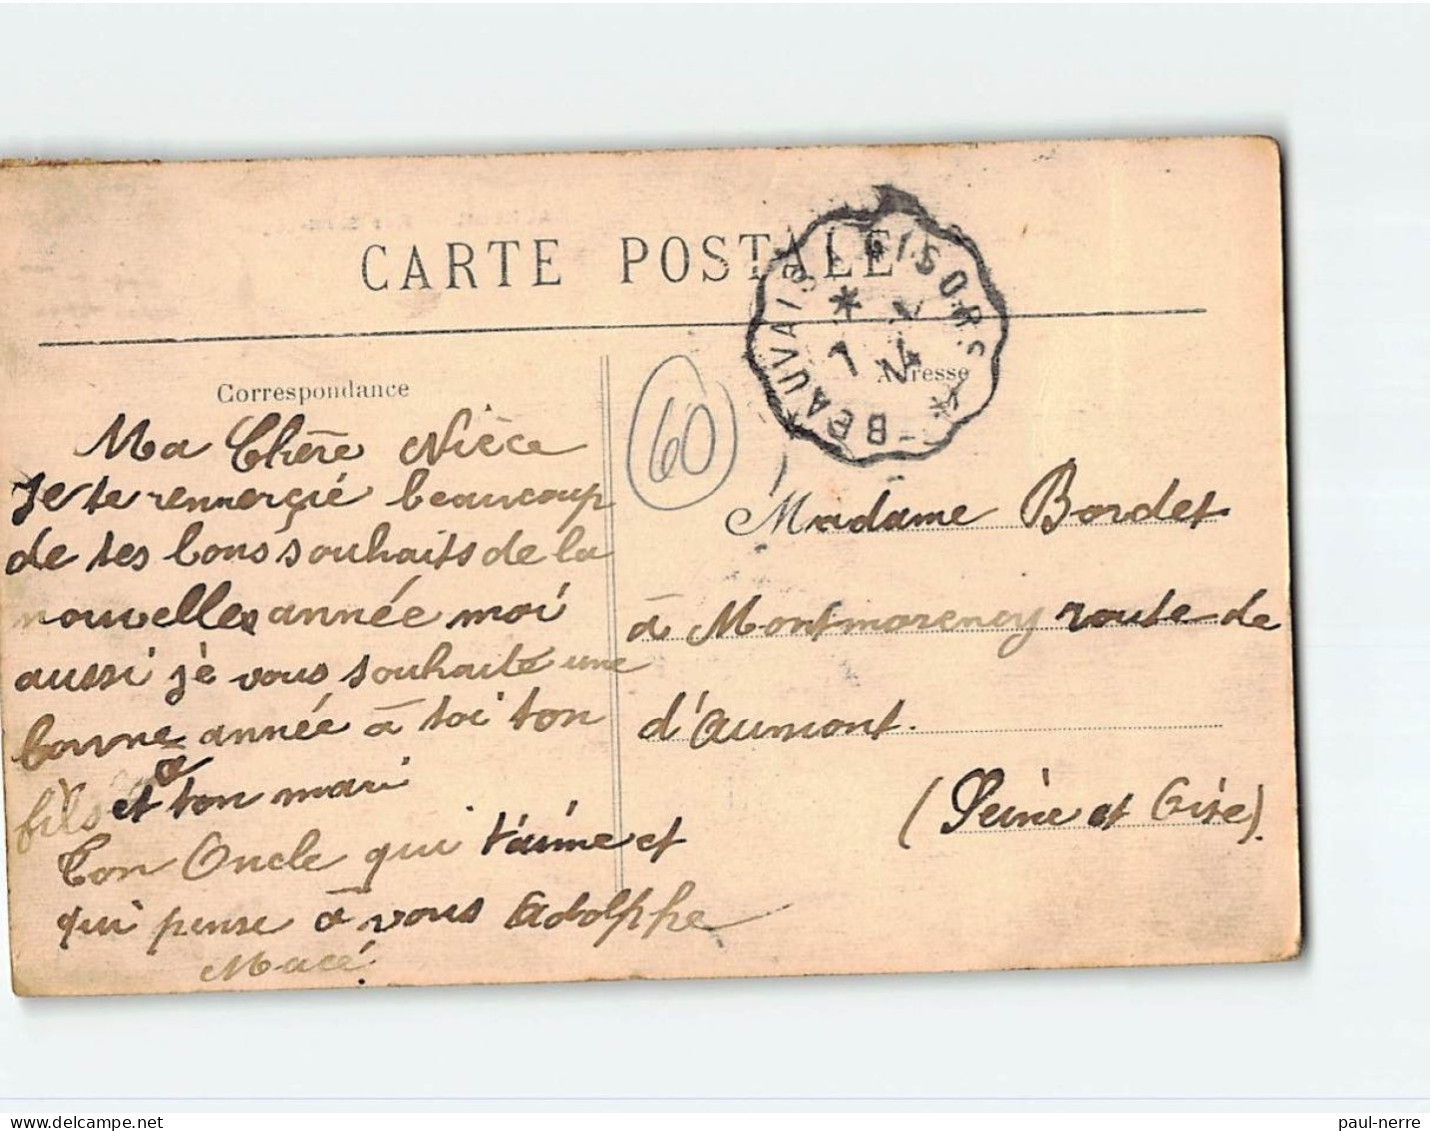 CARTE POSTALE
BEAUVAIS A GISORS
* 7
Correspondance
Adresse
60
Ma Chère Nièce
Je te remmerçié beaucoup
de tes bons souhaits de la
nouvelles année moi
aussi je vous souhaite une
bonne année à toi ton
fils et à ton mari
Ton Oncle qui t'aime et
qui pense à vous Adolphe
Macé
Madame Bordet
à Montmorency route de
d'Aumont.
(Seine et Oise).
paul-nerre